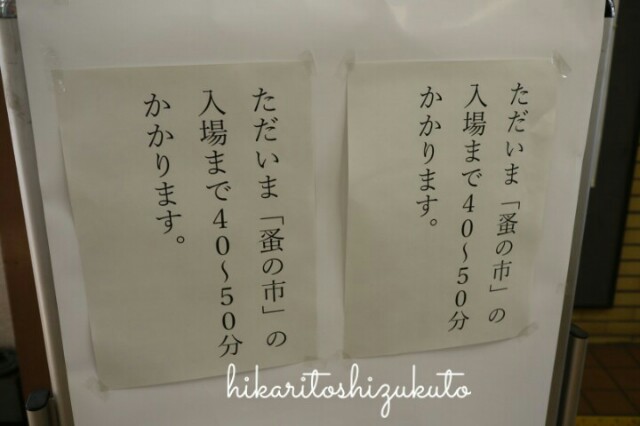 ただいま「蚤の市」の
入場まで40〜50分
かかります。
ただいま「蚤の市」の
入場まで40〜50分
かかります。
hikaritoshizukuto